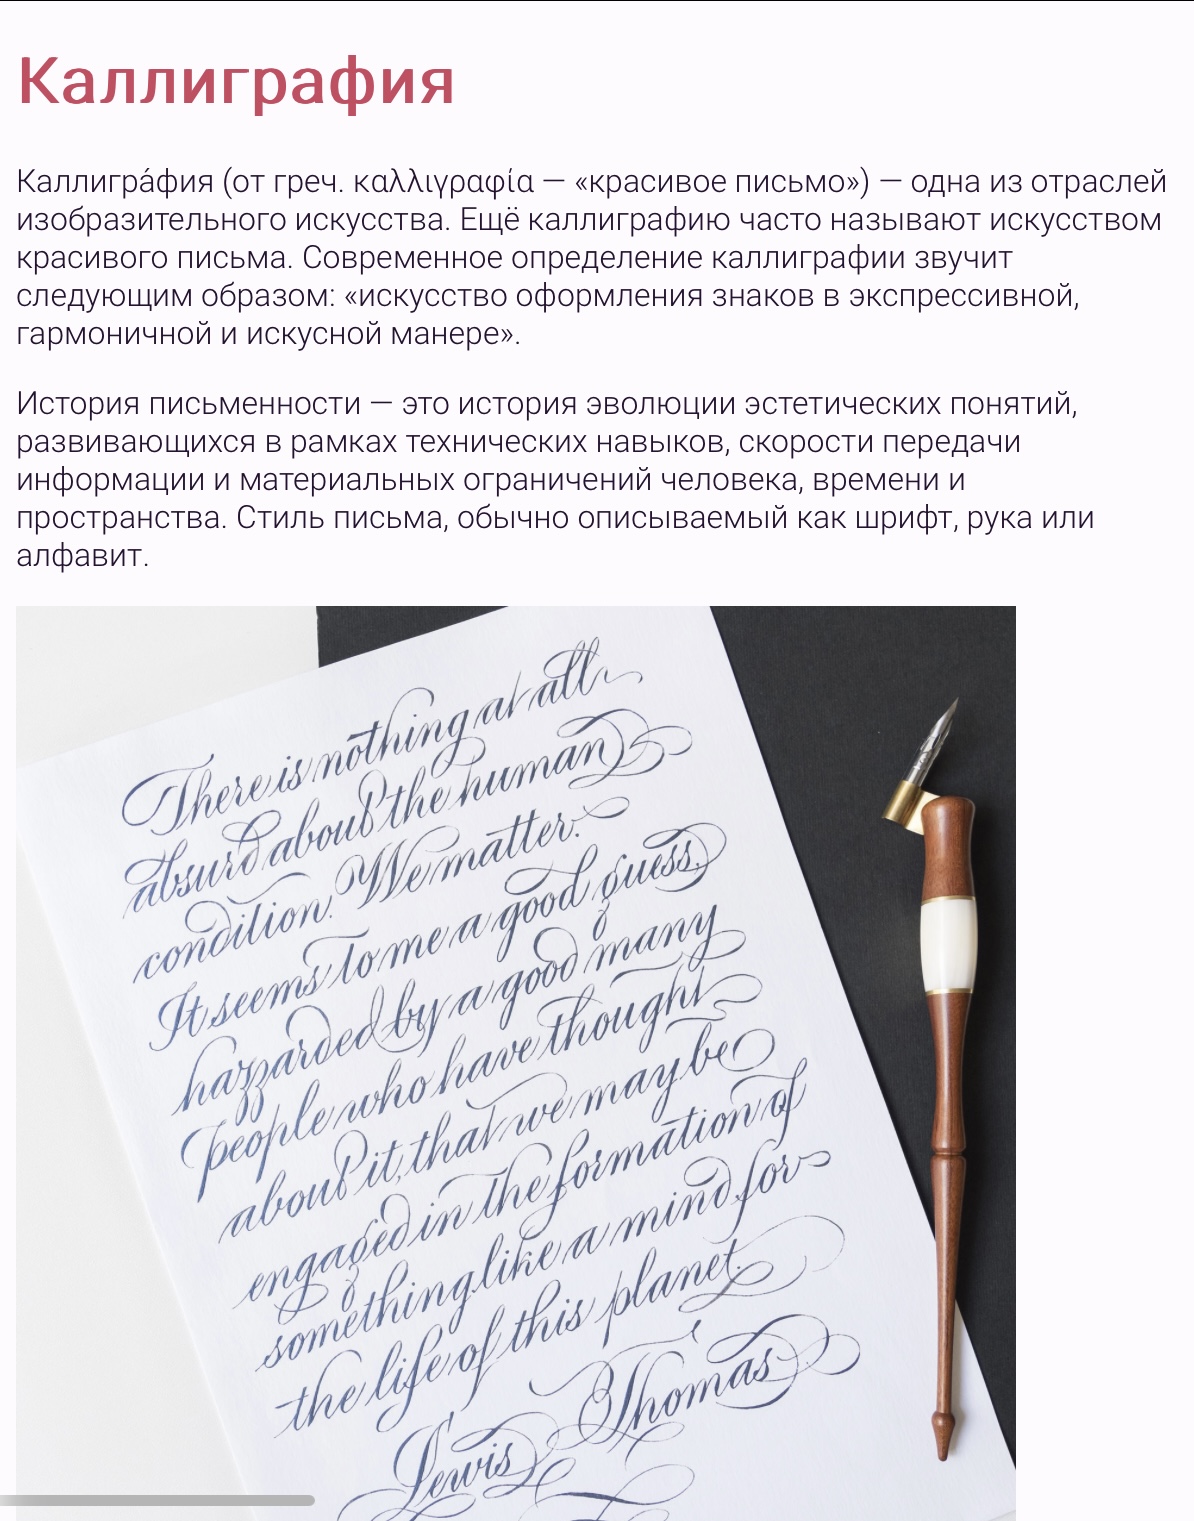 Каллиграфия
Каллигра́фия (от греч. καλλιγραφία — «красивое письмо») — одна из отраслей
изобразительного искусства. Ещё каллиграфию часто называют искусством
красивого письма. Современное определение каллиграфии звучит
следующим образом: «искусство оформления знаков в экспрессивной,
гармоничной и искусной манере».
История письменности — это история эволюции эстетических понятий,
развивающихся в рамках технических навыков, скорости передачи
информации и материальных ограничений человека, времени и
пространства. Стиль письма, обычно описываемый как шрифт, рука или
алфавит.
There is nothing at all
absurd about the human
condition. We matter.
It seems to me a good guess,
hazzarded by a good many
people who have thought
about it, that we may be
engaged in the formation of
something like a mind for
the life of this planet.
Lewis Thomas